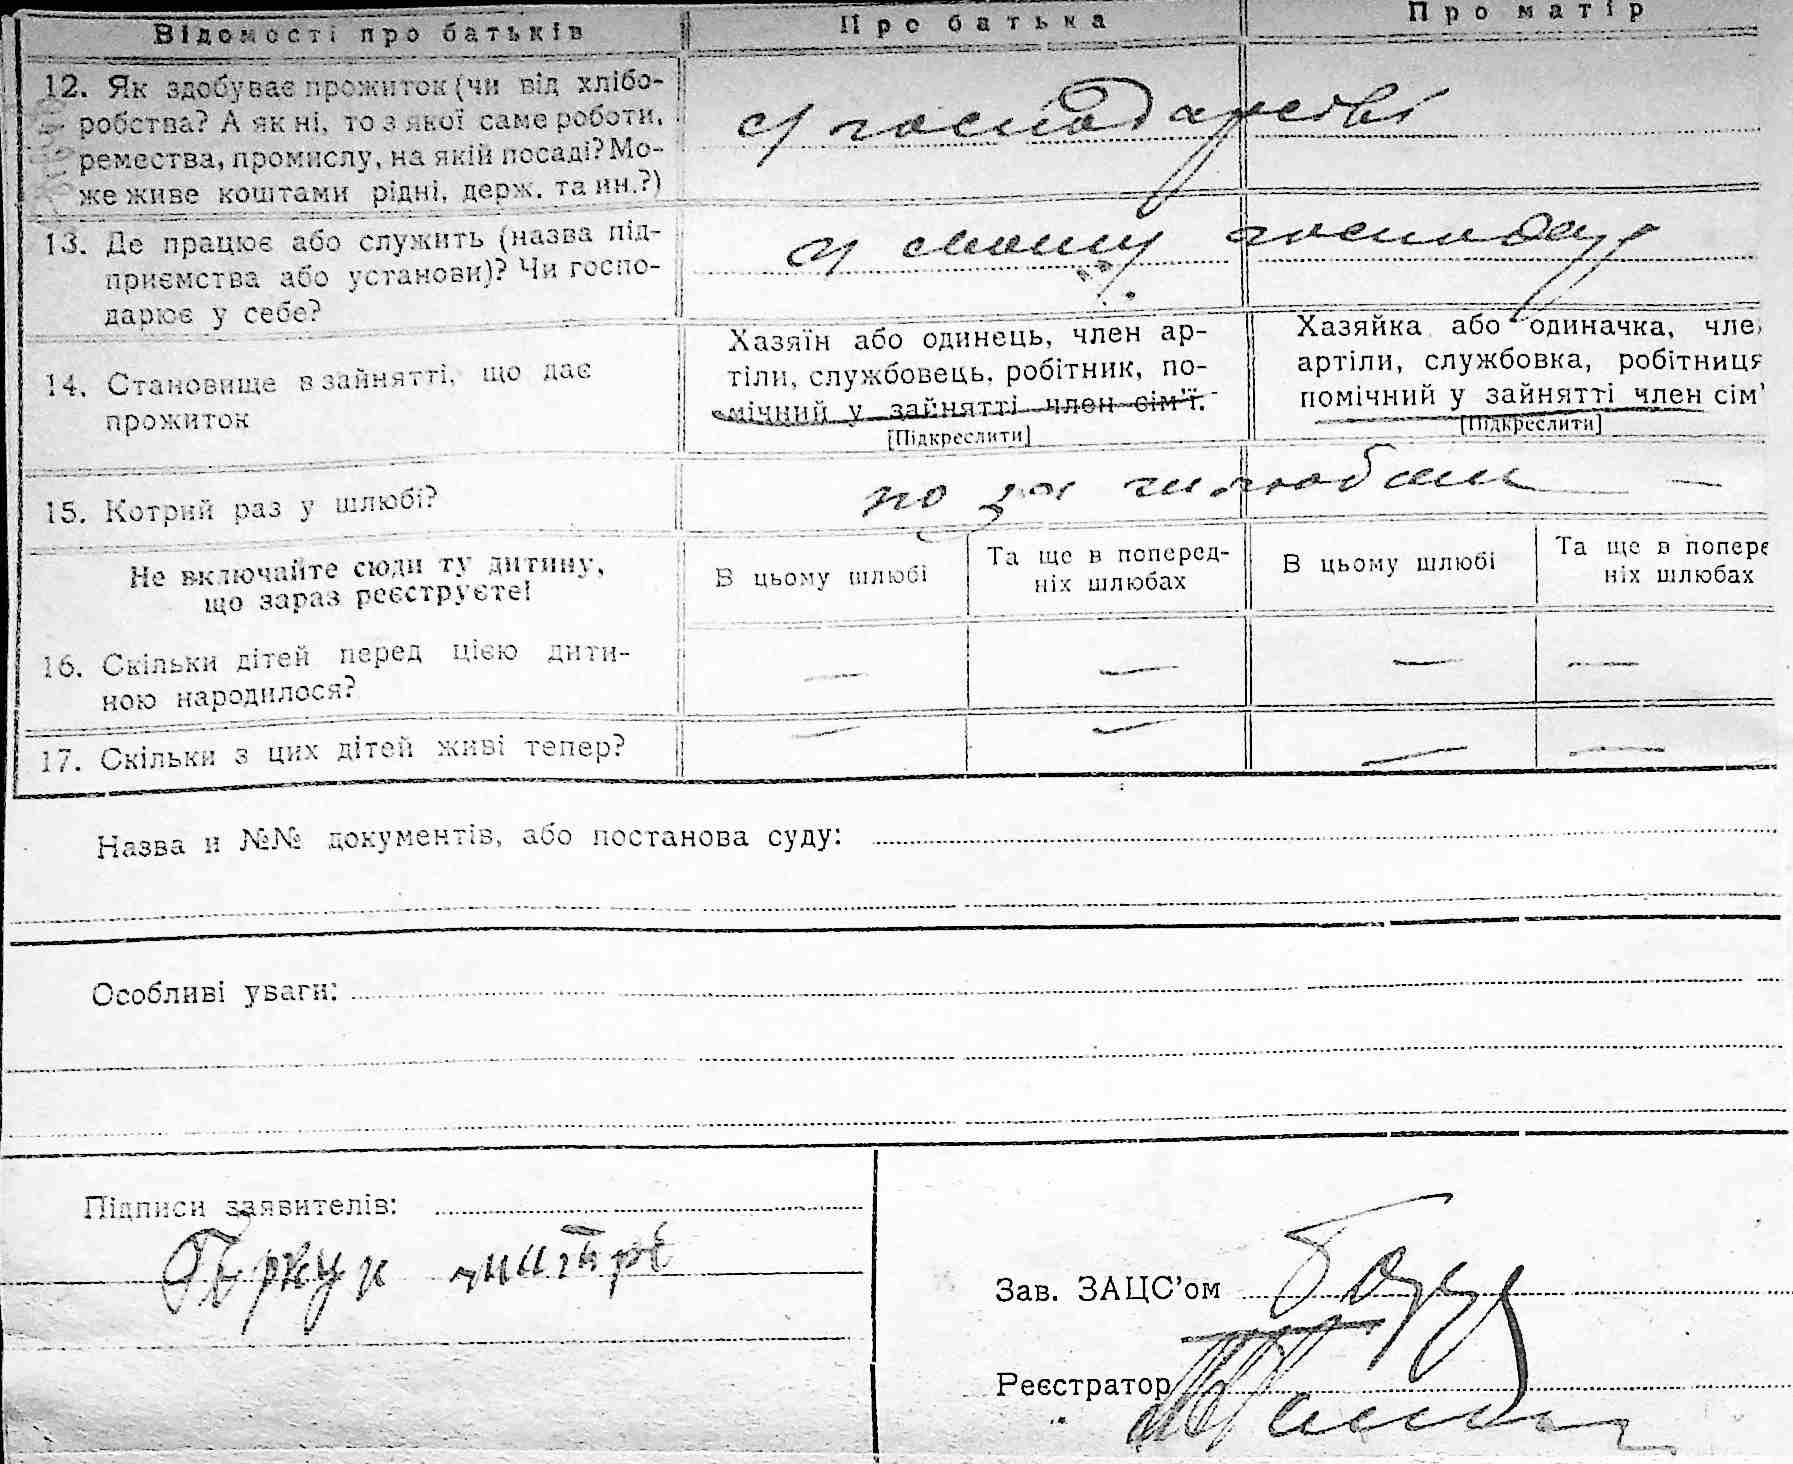 Відомості про батьків
Про батька
Про матір
12. Як здобуває прожиток (чи від хлібо-
робства? А як ні, то з якої саме роботи,
ремества, промислу, на якій посаді? Мо-
же живе коштами рідні, держ. та ин.?)
у господарстві
13. Де працює або служить (назва під-
приємства або установи)? Чи госпо-
дарює у себе?
у своєму господар
14. Становище в зайнятті, що дає
прожиток
Хазяїн або одинець, член ар-
тіли, службовець, робітник, по-
мічний у зайнятті член сім'ї.
[Підкреслити]
Хазяйка або одиначка, чле
артіли, службовка, робітниця
помічний у зайнятті член сім'
[Підкреслити]
15. Котрий раз у шлюбі?
по за шлюбом —
Не включайте сюди ту дитину,
що зараз реєструєте!
В цьому шлюбі
Та ще в поперед-
ніх шлюбах
В цьому шлюбі
Та ще в попере
ніх шлюбах
16. Скільки дітей перед цією дити-
ною народилося?
— — — —
17. Скільки з цих дітей живі тепер?
— — — —
Назва и №№ документів, або постанова суду:
Особливі уваги:
Підписи заявителів:
Зав. ЗАЦС'ом
Реєстратор